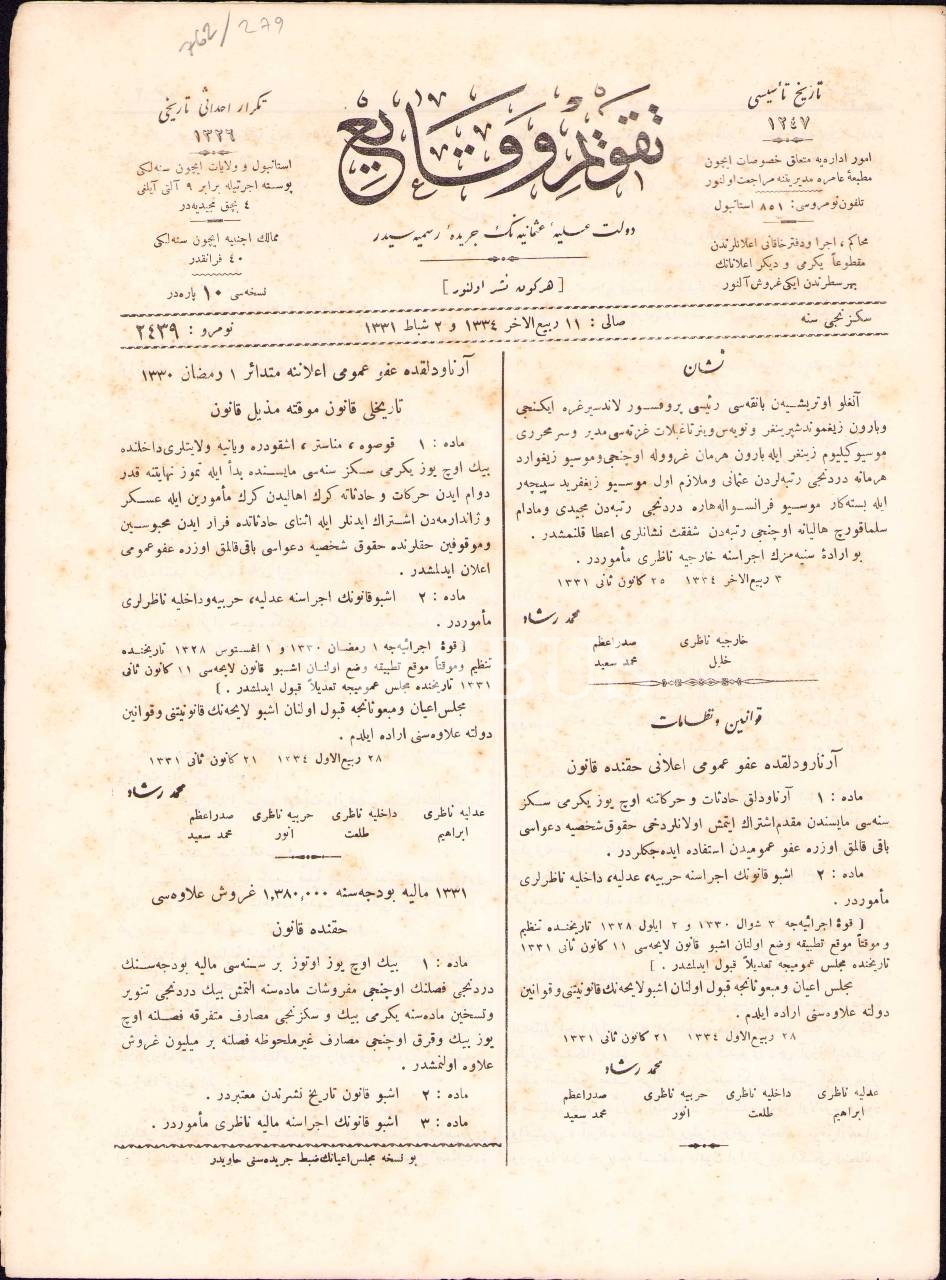 279
تاریخ تأسیسی
١٢٤٧
امور اداره‌یه متعلق خصوصات ایچون
مطبعهٔ عامره مدیریتنه مراجعت اولنور
تلفون نومروسی: ٨٥١ استانبول
محاکم ، اجرا و دفترخاقانی اعلانلرندن
مقطوعاً یکرمی و دیکر اعلاناتك
بهرسطرندن ایکی غروش آلنور
تقویم وقایع
دولت علیهٔ عثمانیه نك جریدهٔ رسمیه سیدر
[ هرکون نشر اولنور ]
تکرار احداثی تاریخی
١٣٢٦
استانبول و ولایات ایچون سنه‌لکی
پوسته اجرتیله برابر ٩ آلتی آیلغی
٤ بچق مجیدیه‌در
ممالك اجنبیه ایچون سنه‌لکی
٤٠ فرانقدر
نسخه‌سی ١٠ پاره‌در
سکزنجی سنه
صالی : ١١ ربیع الاخر ١٣٣٤ و ٢ شباط ١٣٣١
نومرو : ٢٤٣٩
نشان
آنغلو اوتریشیه‌ن بانقه‌سی رئیسی پروفسور لاندسبرغره ایکنجی
وبارون زیغموندشپرینغر و نویه‌س وینر تاغبلات غزته‌سی مدیر و سرمحرری
موسیو کیلیوم زینغر ایله بارون هرمان غرووله اوچنجی وموسیو زیغوارد
هرمانه دردنجی رتبه‌لردن عثمانی و ملازم اول موسیو زیغفرید سپیچه‌ر
ایله بسته‌کار موسیو فرانسوالههاره دردنجی رتبه‌دن مجیدی ومادام
سلماقورچ هالبانه اوچنجی رتبه‌دن شفقت نشانلری اعطا قلنمشدر .
بو ارادهٔ سنیه‌مزك اجراسنه خارجیه ناظری مأموردر .
٣ ربیع الاخر ١٣٣٤ ٢٥ کانون ثانی ١٣٣١
محمد رشاد
خارجیه ناظری صدراعظم
خلیل محمد سعید
قوانین و نظامات
آرناودلقده عفو عمومی اعلانی حقنده قانون
ماده : ١ آرناودلق حادثات و حرکاتنه اوچ یوز یکرمی سکز
سنه‌سی مایسندن مقدم اشتراك ایتمش اولانلردخی حقوق شخصیه دعواسی
باقی قالمق اوزره عفو عمومیدن استفاده ایده‌جکلردر .
ماده : ٢ اشبو قانونك اجراسنه حربیه، عدلیه، داخلیه ناظرلری
مأموردر .
[ قوهٔ اجرائیه‌جه ٣ شوال ١٣٣٠ و ٢ ایلول ١٣٢٨ تاریخنده تنظیم
و موقتاً موقع تطبیقه وضع اولنان اشبو قانون لایحه‌سی ١١ کانون ثانی ١٣٣١
تاریخنده مجلس عمومیجه تعدیلاً قبول ایدلمشدر . ]
مجلس اعیان و مبعوثانجه قبول اولنان اشبو لایحه‌نك قانونیتنی و قوانین
دولته علاوه‌سنی اراده ایلدم .
٢٨ ربیع الاول ١٣٣٤ ٢١ کانون ثانی ١٣٣١
محمد رشاد
عدلیه ناظری داخلیه ناظری حربیه ناظری صدراعظم
ابراهیم طلعت انور محمد سعید
آرناودلقده عفو عمومی اعلاننه متدائر ١ رمضان ١٣٣٠
تاریخلی قانون موقته مذیل قانون
ماده : ١ قوصوه ، مناستر ، اشقودره ویانیه ولایتلری داخلنده
بیك اوچ یوز یکرمی سکز سنه‌سی مایسنده بدأ ایله تموز نهایتنه قدر
دوام ایدن حرکات و حادثاته کرك اهالیدن کرك مأمورین ایله عسکر
و ژاندارمه‌دن اشتراك ایدنلر ایله اثنای حادثاتده فرار ایدن محبوسین
وموقوفین حقلرنده حقوق شخصیه دعواسی باقی قالمق اوزره عفو عمومی
اعلان ایدلمشدر .
ماده : ٢ اشبو قانونك اجراسنه عدلیه، حربیه و داخلیه ناظرلری
مأموردر .
[ قوهٔ اجرائیه‌جه ١ رمضان ١٣٣٠ و ١ اغستوس ١٣٢٨ تاریخنده
تنظیم وموقتاً موقع تطبیقه وضع اولنان اشبو قانون لایحه‌سی ١١ کانون ثانی
١٣٣١ تاریخنده مجلس عمومیجه تعدیلاً قبول ایدلمشدر . ]
مجلس اعیان ومبعوثانجه قبول اولنان اشبو لایحه‌نك قانونیتنی و قوانین
دولته علاوه‌سنی اراده ایلدم .
٢٨ ربیع الاول ١٣٣٤ ٢١ کانون ثانی ١٣٣١
محمد رشاد
عدلیه ناظری داخلیه ناظری حربیه ناظری صدراعظم
ابراهیم طلعت انور محمد سعید
١٣٣١ مالیه بودجه‌سنه ١,٣٨٠,٠٠٠ غروش علاوه‌سی
حقنده قانون
ماده : ١ بیك اوچ یوز اوتوز بر سنه‌سی مالیه بودجه‌سنك
دردنجی فصلنك اوچنجی مفروشات ماده‌سنه التمش بیك دردنجی تنویر
وتسخین ماده‌سنه یکرمی بیك و سکزنجی مصارف متفرقه فصلنه اوچ
یوز بیك وقرق اوچنجی مصارف غیرملحوظه فصلنه بر میلیون غروش
علاوه اولنمشدر .
ماده : ٢ اشبو قانون تاریخ نشرندن معتبردر .
ماده : ٣ اشبو قانونك اجراسنه مالیه ناظری مأموردر .
بو نسخه مجلس اعیانك ضبط جریده‌سنی حاویدر